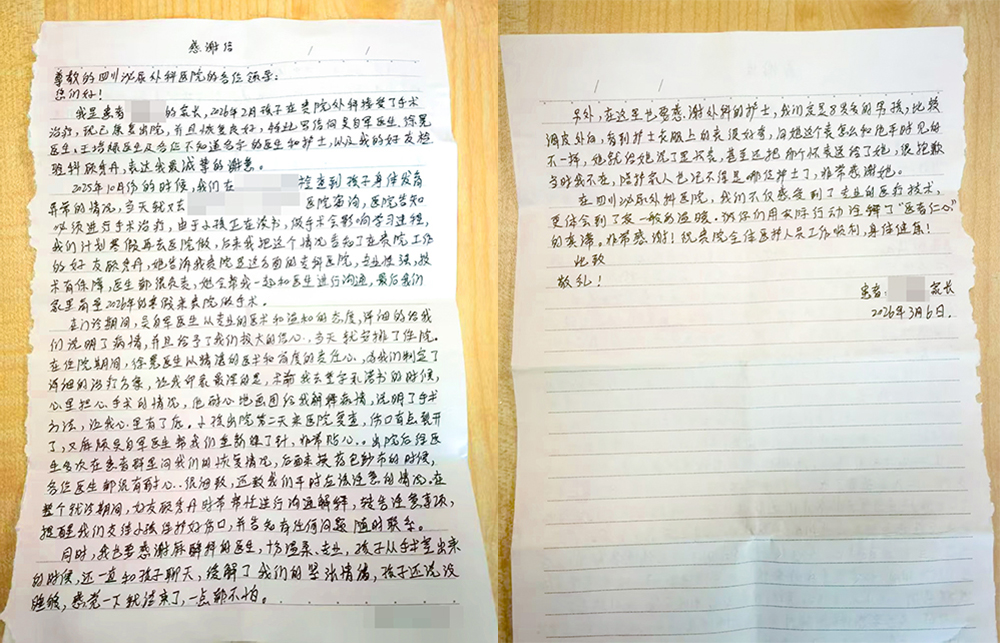 感谢信
尊敬的四川泌尿外科医院的各位领导:
您们好!
我是患者 的家长,2026年2月孩子在贵院外科接受了手术
治疗,现已康复出院,并且恢复良好,特此写信向吴自军医生、徐
医生,王 医生及各位不知道名字的医生和护士,以及我的好友检
验科顾秀丹,表达我最诚挚的谢意。
2025年10月份的时候,我们在 检查到孩子身体发育
异常的情况,当天就又去 医院咨询,医院告知
必须进行手术治疗,由于小孩正在读书,做手术会影响学习进程,
我们计划寒假再去医院做,后来我把这个情况告知了在贵院工作
的好友顾秀丹,她告诉我贵院是这方面的专科医院,专业性强,技
术有保障,医生都很负责,她会帮我一起和医生进行沟通,最后我们
家里商量2026年的寒假来贵院做手术。
在门诊期间,吴自军医生从专业的医术和温和的态度,详细的给我
们说明了病情,并且给予了我们极大的信心,当天就安排了住院。
在住院期间,徐 医生从精湛的医术和高度的责任心,为我们制定了
详细的治疗方案,让我印象最深的是,术前我去签字承诺书的时候,
心里担心手术的情况,他耐心地画图给我解释病情,说明了手术
方法,让我心里有了底。小孩出院第二天来医院复查,伤口有点裂开
了,又麻烦吴自军医生帮我们重新缝了针,非常贴心。出院后徐医
生多次在患者群里问我们的恢复情况,后面来换药包纱布的时候,
各位医生都很有耐心、很细致,还教我们平时应该注意的情况。在
整个就诊期间,好友顾秀丹时常帮忙进行沟通解释,转告注意事项,
提醒我们交待小孩保护好伤口,并告知有任何问题随时联系。
同时,我也要感谢麻醉科的医生,十分温柔、专业,孩子从手术室出来
的时候,还一直和孩子聊天,缓解了我们的紧张情绪,孩子还说没
睡够,感觉一下就结束了,一点都不怕。
另外,在这里也要感谢外科的护士,我们家是8岁多的男孩,比较
调皮外向,看到护士衣服上的表很好奇,问她这个表怎么和他平时见的
不一样,她就给她说了里 表,甚至还把 怀表送给了她,很抱歉
当时我不在,陪护家人也记不住是哪位护士了,非常感谢她。
在四川泌尿外科医院,我们不仅感受到了专业的医疗技术,
更体会到了家一般的温暖。谢你们用实际行动诠释了“医者仁心”
的真谛。非常感谢!祝贵院全体医护人员工作顺利,身体健康!
此致
敬礼!
患者: 家长
2026年3月6日.